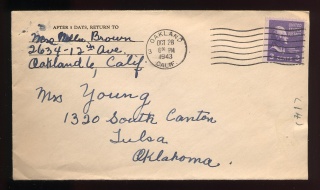 AFTER 5 DAYS, RETURN TO
Mrs Nella Brown
2634-12th Ave.
Oakland 6, Calif.
OAKLAND
3
OCT 28
PM
1943
CALIF.
Mrs Young
1320 South Canton
Tulsa
Oklahoma.